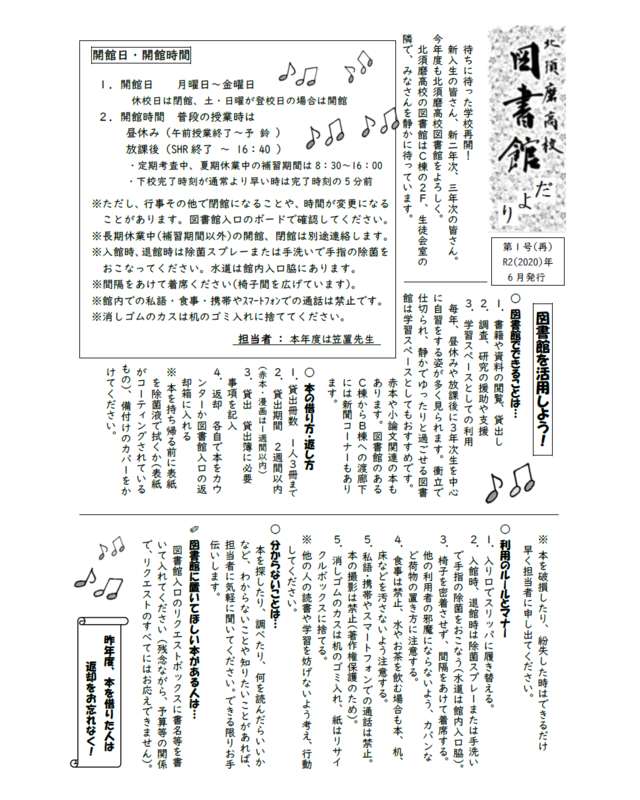 北須磨高校
図書館
だより
第１号(再)
R2(2020)年
６月発行
待ちに待った学校再開！
新入生の皆さん、新二年次、三年次の皆さん。
今年度も北須磨高校図書館をよろしく。
北須磨高校の図書館はＣ棟の２Ｆ、生徒会室の
隣で、みなさんを静かに待っています。
開館日・開館時間
１．開館日　　月曜日～金曜日
休校日は閉館、土・日曜が登校日の場合は開館
２．開館時間　普段の授業時は
昼休み（午前授業終了～予 鈴 ）
放課後（SHR 終了 ～ 16：40 ）
・定期考査中、夏期休業中の補習期間は 8：30～16：00
・下校完了時刻が通常より早い時は完了時刻の５分前
※ただし、行事その他で閉館になることや、時間が変更になる
ことがあります。図書館入口のボードで確認してください。
※長期休業中(補習期間以外)の開館、閉館は別途連絡します。
※入館時、退館時は除菌スプレーまたは手洗いで手指の除菌を
おこなってください。水道は館内入口脇にあります。
※間隔をあけて着席ください(椅子間を広げています)。
※館内での私語・食事・携帯やスマートフォンでの通話は禁止です。
※消しゴムのカスは机のゴミ入れに捨ててください。
担当者 ： 本年度は笠置先生
図書館を活用しよう！
○ 図書館でできることは…
１．書籍や資料の閲覧、貸出し
２．調査、研究の援助や支援
３．学習スペースとしての利用
毎年、昼休みや放課後に３年次生を中心
に自習をする姿が多く見られます。衝立で
仕切られ、静かでゆったりと過ごせる図書
館は学習スペースとしてもおすすめです。
赤本や小論文関連の本も
あります。図書館のある
Ｃ棟からＢ棟への渡廊下
には新聞コーナーもあり
ます。
○ 本の借り方・返し方
１．貸出冊数　１人３冊まで
２．貸出期間　２週間以内
(赤本・漫画は１週間以内)
３．貸出　貸出簿に必要
事項を記入
４．返却　各自で本をカウ
ンターか図書館入口の返
却箱に入れる
※ 本を持ち帰る前に表紙
を除菌液で拭くか(表紙
がコーティングされている
もの)、備付けのカバーをか
けてください。
※ 本を破損したり、紛失した時はできるだけ
早く担当者に申し出てください。
○ 利用のルールとマナー
１．入り口でスリッパに履き替える。
２．入館時、退館時は除菌スプレーまたは手洗い
で手指の除菌をおこなう(水道は館内入口脇)。
３．椅子を密着させず、間隔をあけて着席する。
他の利用者の邪魔にならないよう、カバンな
ど荷物の置き方に注意する。
４．食事は禁止、水やお茶を飲む場合も本、机、
床などを汚さないよう注意する。
５．私語・携帯やスマートフォンでの通話は禁止。
本の撮影は禁止(著作権保護のため)。
５．消しゴムのカスは机のゴミ入れ、紙はリサイ
クルボックスに捨てる。
※ 他の人の読書や学習を妨げないよう考え、行動
してください。
○ 分からないことは…
本を探したり、調べたり、何を読んだらいいか
など、わからないことや知りたいことがあれば、
担当者に気軽に聞いてください。できる限りお手
伝いします。
図書館に置いてほしい本がある人は…
図書館入口のリクエストボックスに書名等を書
いて入れてください(残念ながら、予算等の関係
で、リクエストのすべてにはお応えできません)。
昨年度、本を借りた人は
返却をお忘れなく！